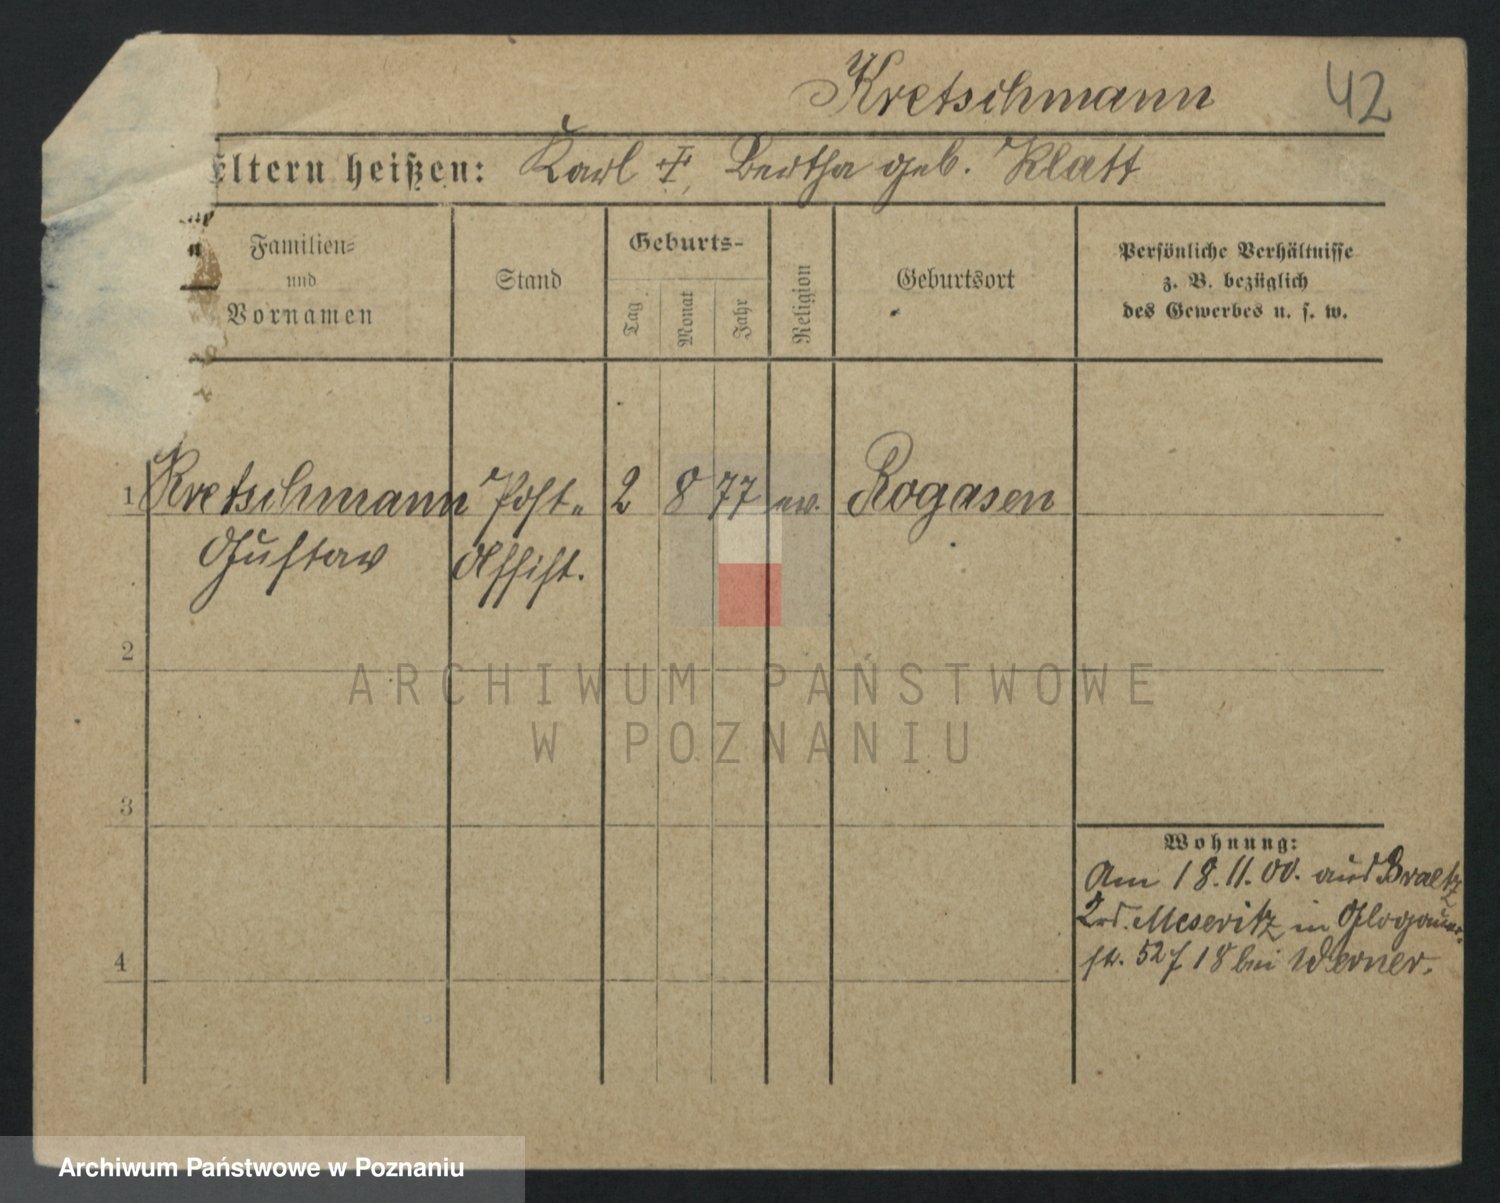 Kretschmann 42
Eltern heißen: Karl †, Bertha geb. Klatt
Familien-
und
Vornamen
Stand
Geburts-
Tag
Monat
Jahr
Religion
Geburtsort
Persönliche Verhältnisse
z. B. bezüglich
des Gewerbes u. s. w.
1 Kretschmann Post- 2 8 77 ev. Rogasen
Gustav Assist.
2
3
4
Wohnung:
Am 18.11.00. aus Braetz
Meseritz in Glogauer-
str. 52 18 bei Werner.
ARCHIWUM PAŃSTWOWE
W POZNANIU
Archiwum Państwowe w Poznaniu